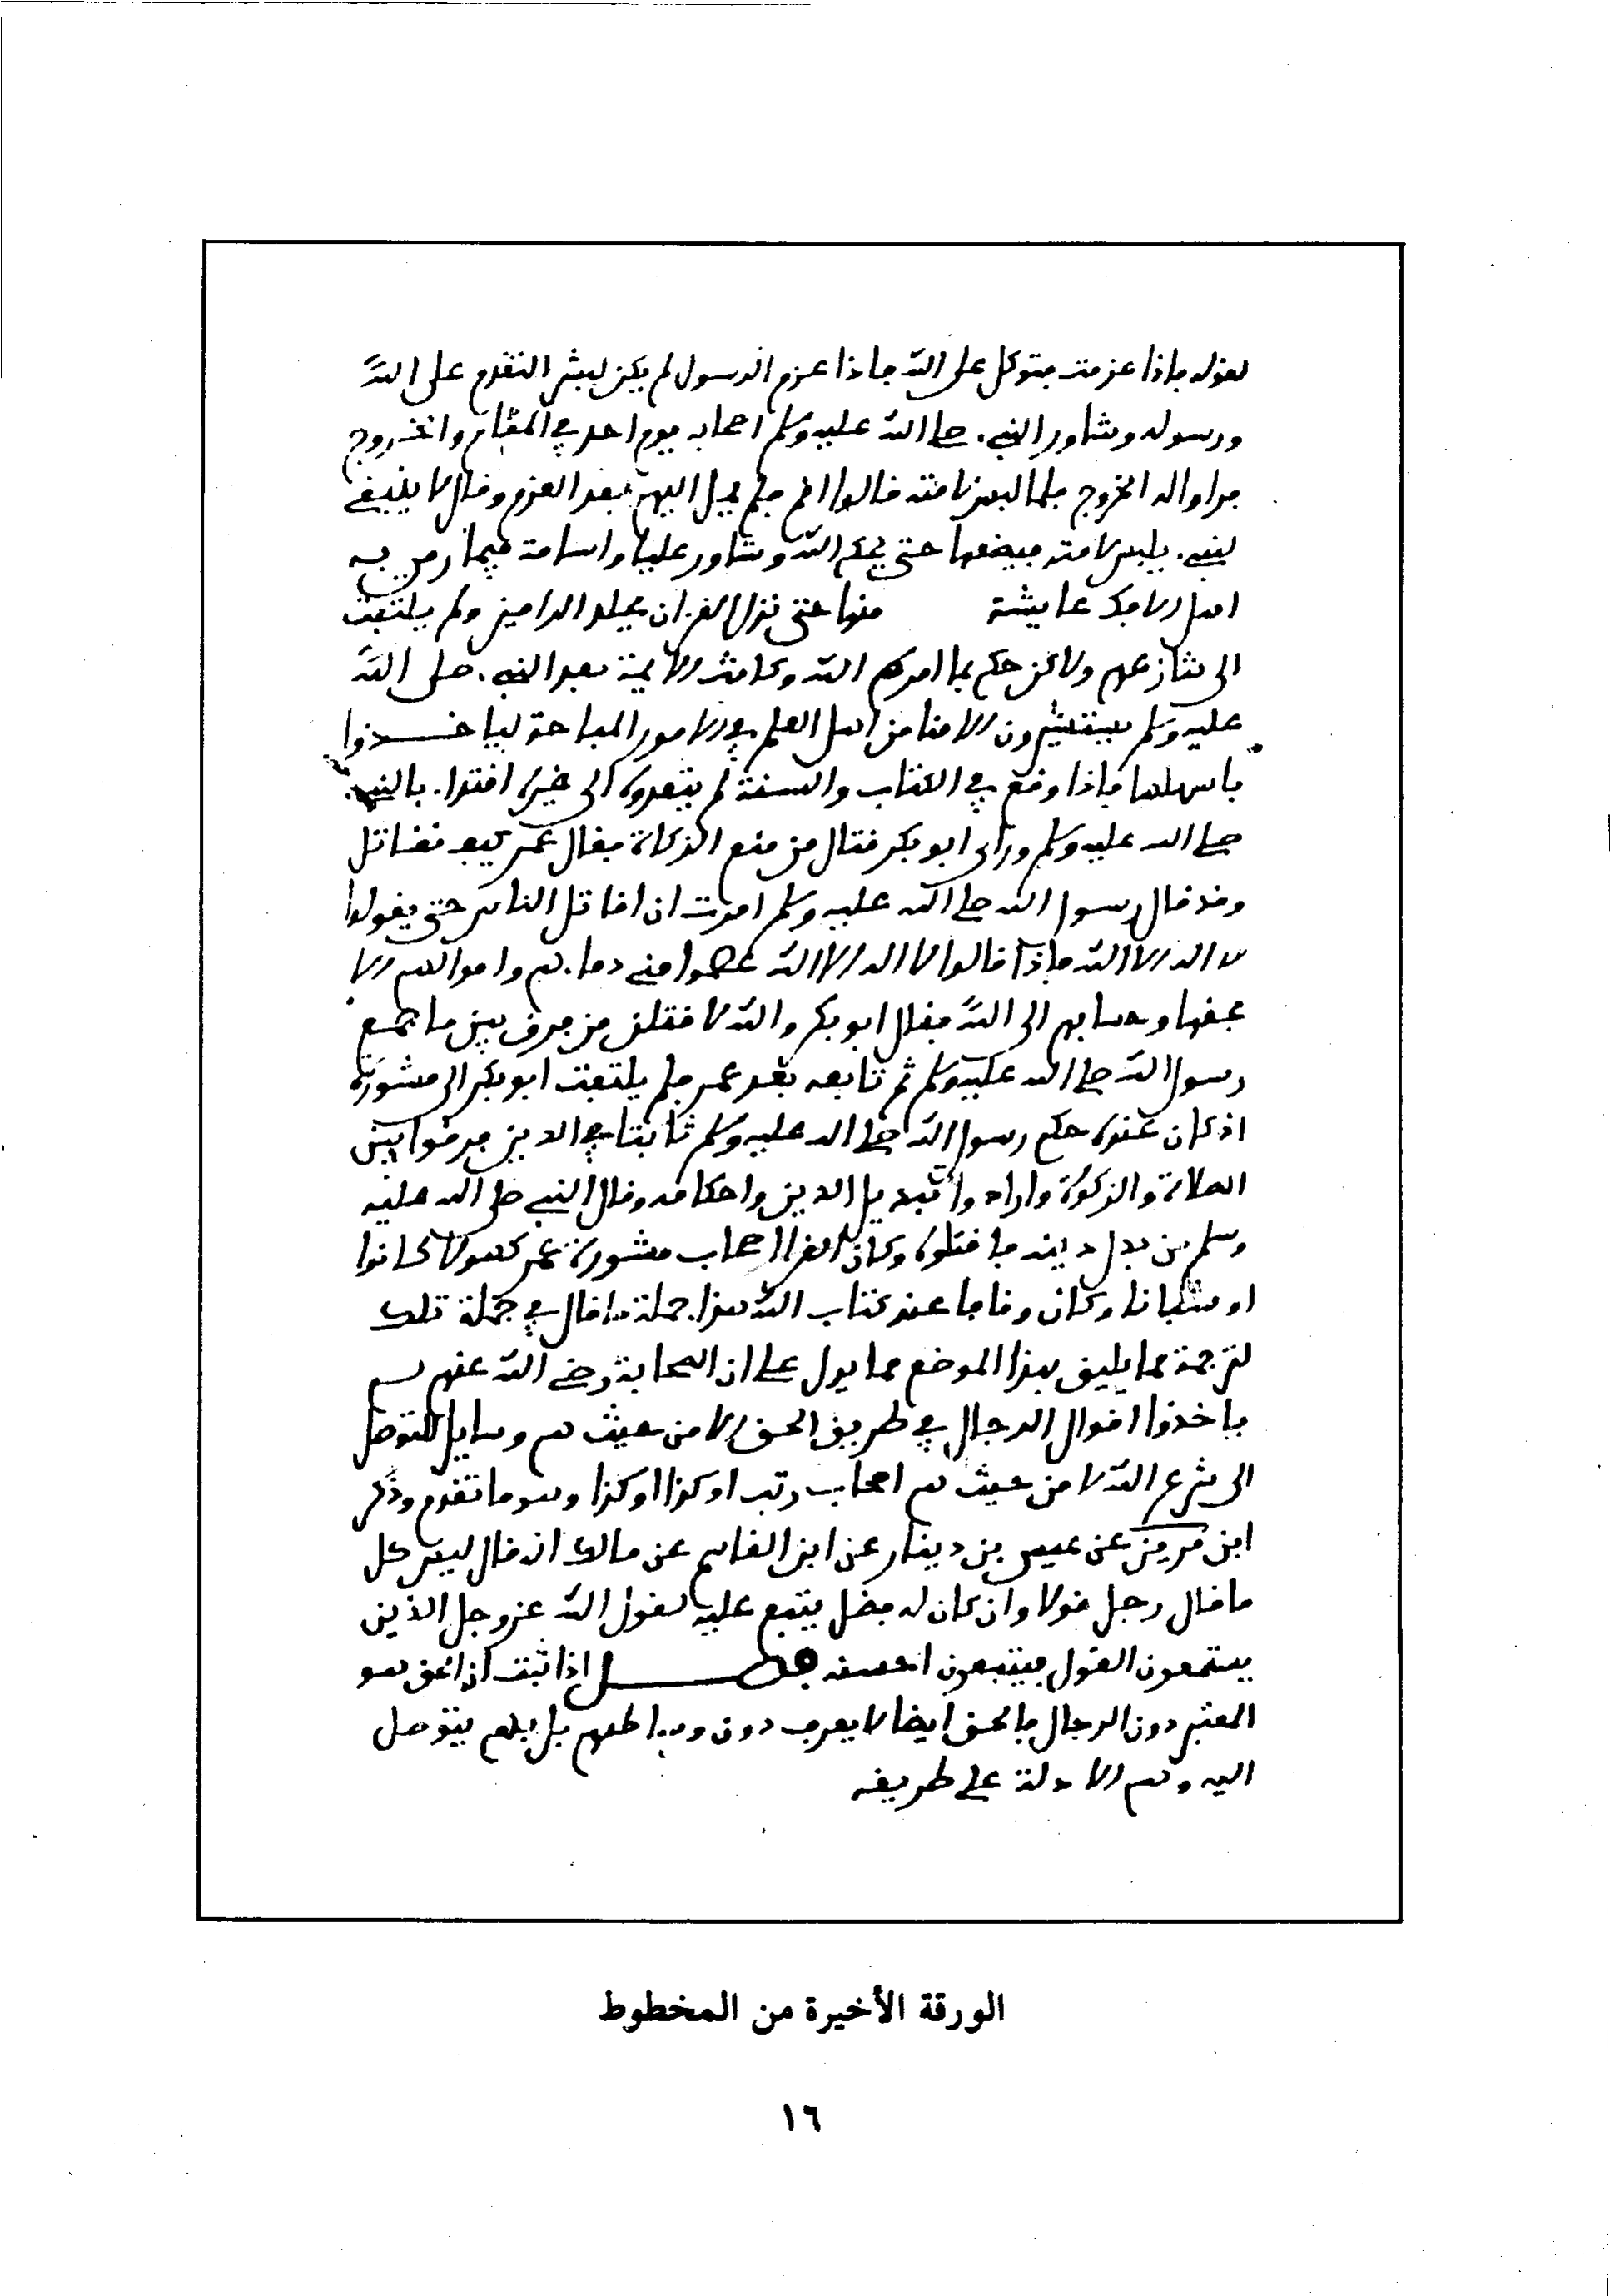 لقوله فاذا عزمت فتوكل على الله فاذا عزم الرسول لم يكن لبشر التقدم على الله
ورسوله وشاور النبي صلى الله عليه وسلم اصحابه يوم احد في المقام والخروج
فراوا له الخروج فلما لبس لامته قالوا اقم فلم يمل اليهم بعد العزم وقال لا ينبغي
لنبي يلبس لامته فيضعها حتى يحكم الله وشاور عليا واسامة فيما رمى به
اهل الافك عايشة منها حتى نزل القران فجلد الرامين ولم يلتفت
الى تنازعهم ولاكن حكم بما امره الله وكانت الايمة بعد النبي صلى الله
عليه وسلم يستشيرون الامنا من اهل العلم في الامور المباحة لياخذوا
باسهلها فاذا وقع في الكتاب والسنة لم يتعدوه الى غيره اقتدا بالنبي
صلى الله عليه وسلم وراى ابو بكر قتال من منع الزكاة فقال عمر كيف تقاتل
وقد قال رسول الله صلى الله عليه وسلم امرت ان اقاتل الناس حتى يقولوا
لا اله الا الله فاذا قالوا لا اله الا الله عصموا مني دماهم واموالهم الا
بحقها وحسابهم الى الله فقال ابو بكر والله لاقتلن من فرق بين ما جمع
رسول الله صلى الله عليه وسلم ثم تابعه بعد عمر فلم يلتفت ابو بكر الى مشورة
اذ كان عنده حكم رسول الله صلى الله عليه وسلم ثابتا في الذين فرقوا بين
الصلاة والزكوة وارادوا تبديل الدين واحكامه وقال النبي صلى الله عليه
وسلم من بدل دينه فاقتلوه وكان القرا اصحاب مشورة عمر كهولا كانوا
او شبانا وكان وقافا عند كتاب الله هذا جملة ما قال في جملة تلك
لترجمة مما يليق بهذا الموضع مما يدل على ان الصحابة رضي الله عنهم لم
ياخذوا اقوال الرجال في طريق الحق الا من حيث هم وسايل للتوصل
الى شرع الله لا من حيث هم اصحاب رتب او كذا او كذا وهو ما تقدم وذكر
ابن مزين عن عيسى بن دينار عن ابن القاسم عن مالك انه قال ليس كل
ما قال رجل قولا وان كان له فضل يتبع عليه لقول الله عز وجل الذين
يستمعون القول فيتبعون احسنه فصل اذا ثبت ان الحق هو
المعتبر دون الرجال فالحق ايضا لا يعرف دون وسايطهم بل بهم يتوصل
اليه وهم الادلة على طريقه
الورقة الأخيرة من المخطوط
١٦